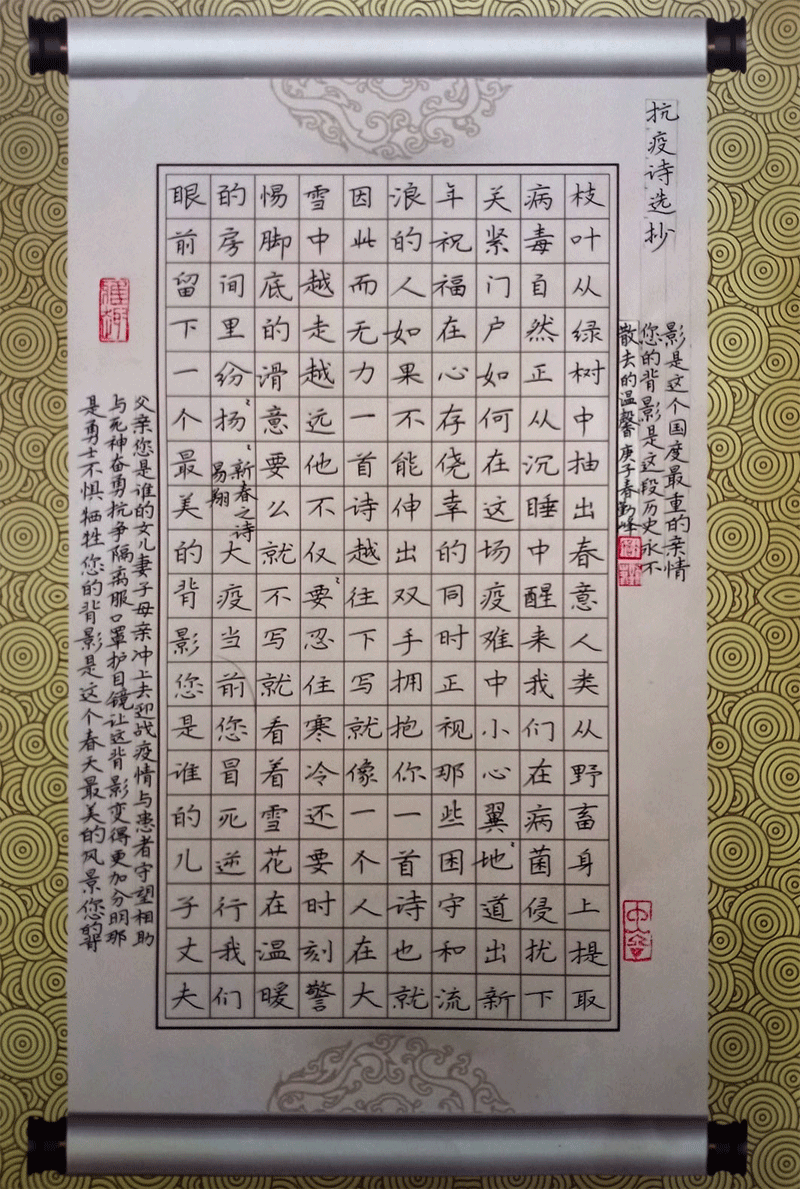 抗疫诗选抄
枝叶从绿树中抽出春意人类从野畜身上提取
病毒自然正从沉睡中醒来我们在病菌侵扰下
关紧门户如何在这场疫难中小心翼〻地道出新
年祝福在心存侥幸的同时正视那些困守和流
浪的人如果不能伸出双手拥抱你一首诗也就
因此而无力一首诗越往下写就像一个人在大
雪中越走越远他不仅要〻忍住寒冷还要时刻警
惕脚底的滑意要么就不写就看着雪花在温暖
的房间里纷〻扬〻新春之诗易翔大疫当前您冒死逆行我们
眼前留下一个最美的背影您是谁的儿子丈夫
父亲您是谁的女儿妻子母亲冲上去迎战疫情与患者守望相助
与死神奋勇抗争隔离服口罩护目镜让这背影变得更加分明那
是勇士不惧牺牲您的背影是这个春天最美的风景您的背
影是这个国度最重的亲情
您的背影是这段历史永不
散去的温馨庚子春勤峰